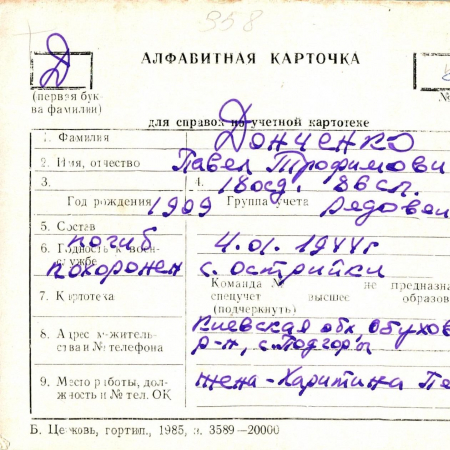 958
АЛФАВИТНАЯ КАРТОЧКА
Д
(первая бук-
ва фамилии)
№
для справок по учетной картотеке
1. Фамилия Донченко
2. Имя, отчество Павел Трофимови
3. 4. 18 осд. 86 сп.
Год рождения 1909 Группа учета Рядовой
5. Состав погиб
6. Годность к воен- 4.01.1944г
службе похоронен с. Острийки
Команда № не предназна
7. Картотека спецучет высшее образов
(подчеркнуть)
8. Адрес жительст- Киевская обл Обухов
ва и № телефона р-н, с. Подгоры
9. Место работы, дол- жена - Харитина Па
жность и № тел. ОК
Б. Церковь, гортип., 1985, з. 3589—20000